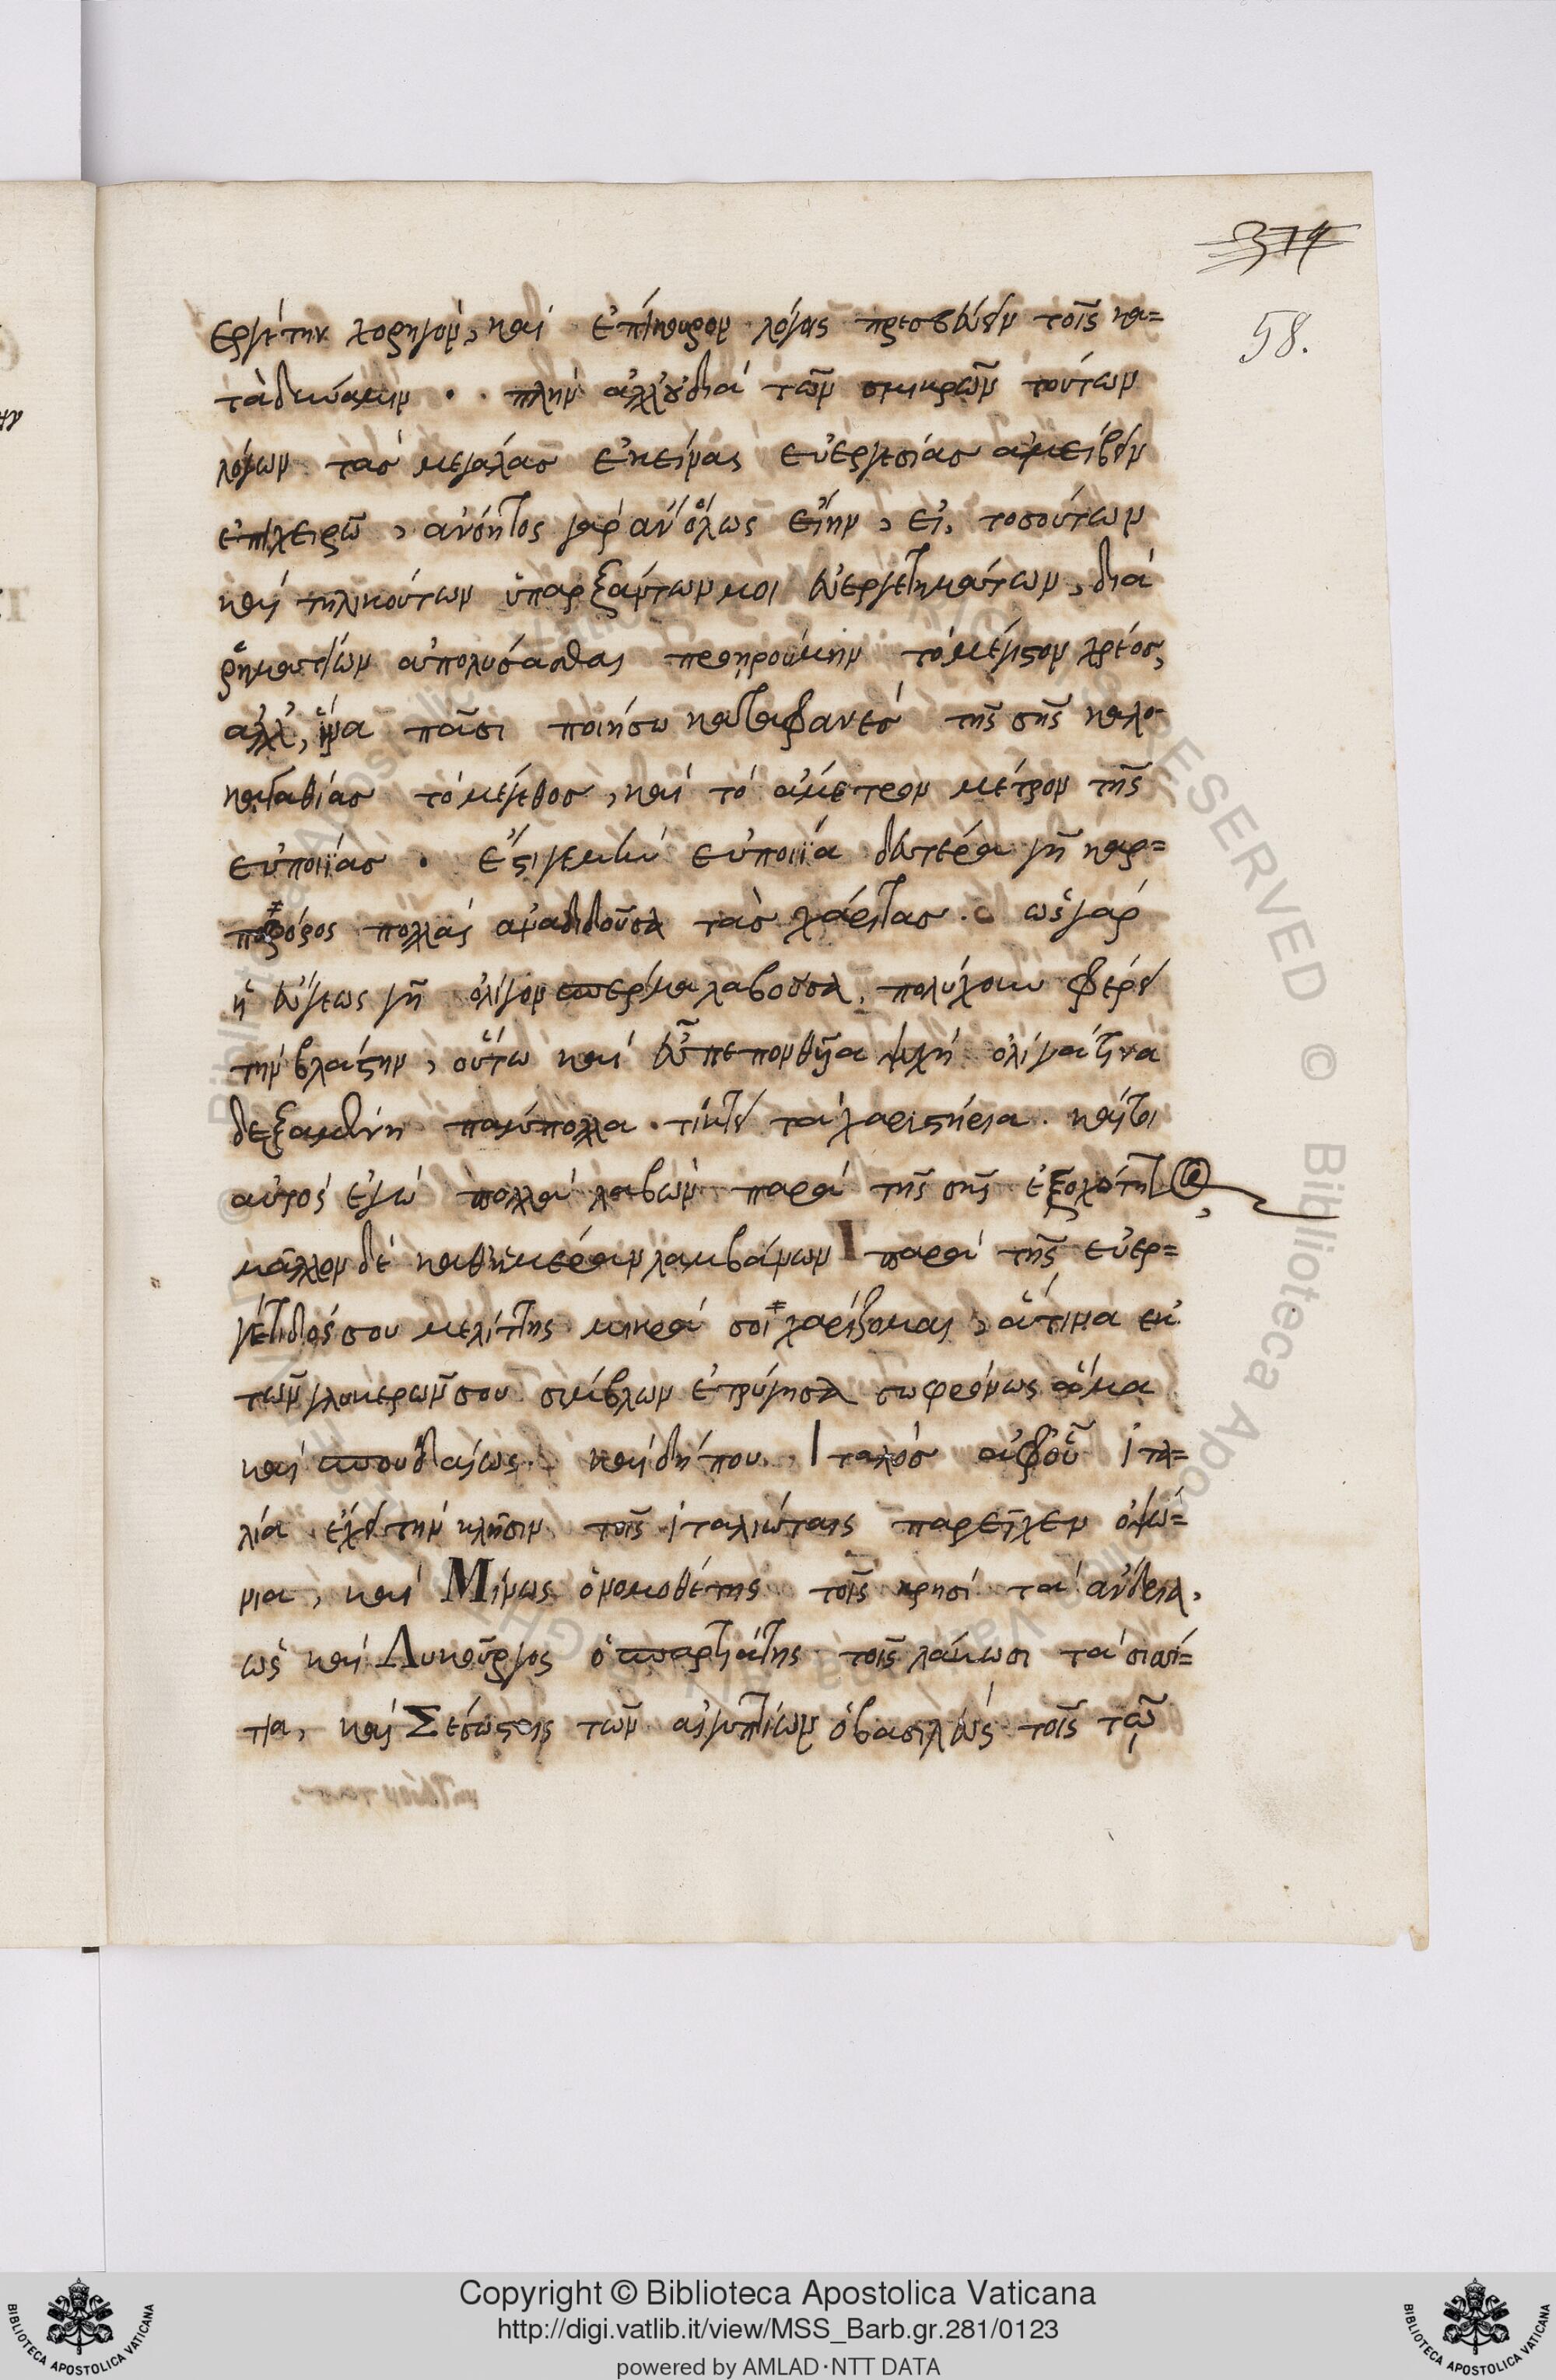 374
58.
εργέτην χορηγόν, καὶ ἐπίκουρον λόγοις πρεσβεύειν τοῖς κα=
τὰ δύναμιν . . πλὴν ἀλλ' οὐ διὰ τῶν σμικρῶν τούτων
λόγων τὰς μεγάλας ἐκείνας εὐεργεσίας ἀμείβειν
ἐπιχειρῶ, ἀνόητος γὰρ ἂν ὅλως εἴην, εἰ, τοσούτων
καὶ τηλικούτων ὑπαρξάντων μοι εὐεργετημάτων, διὰ
ῥηματίων ἀπολύσασθαι προῃρούμην τὸ μέγιστον χρέος,
ἀλλ', ἵνα πᾶσι ποιήσω καταφανὲς τῆς σῆς καλο
καγαθίας τὸ μέγεθος, καὶ τὸ ἄμετρον μέτρον τῆς
εὐποιΐας . ἔστι γε μὴν εὐποιΐα δευτέρα γῆ καρ=
ποφόρος πολλὰς ἀναδιδοῦσα τὰς χάριτας . ὡς γὰρ
ἡ εὔγεως γῆ ὀλίγον σπέρμα λαβοῦσα, πολύχουν φέρει
τὴν βλάστην, οὕτω καὶ εὖ πεπονθυῖα ψυχὴ ὀλίγα τινὰ
δεξαμένη παμπολλα . τίκτει τὰ χαριστήρια . καί τοι
αὐτὸς ἐγὼ πολλὰ λαβὼν παρὰ τῆς σῆς ἐξοχότητος,
μᾶλλον δὲ καθημέραν λαμβάνων παρὰ τῆς εὐερ=
γέτιδός σου μελίττης μικρά σοι χαρίζομαι, ἅτινα ἐκ
τῶν γλυκερῶν σου σίμβλων ἐτρύγησα σωφρόνως ἅμα
καὶ σπουδαίως . καὶ δήπου Ἰταλὸς ἀφ' οὗ Ἰτα=
λία ἔχει τὴν κλῆσιν τοῖς ἰταλιώταις παρεῖχεν ὀψώ=
νια, καὶ Μίνως ὁ νομοθέτης τοῖς κρησὶ τὰ ἄνδρια,
ὡς καὶ Λυκοῦργος ὁ σπαρτιάτης τοῖς λάκωσι τὰ σισσί=
τια, καὶ Σέσωστρις τῶν αἰγυπτίων ὁ βασιλεὺς τοῖς τῶν
Copyright © Biblioteca Apostolica Vaticana
http://digi.vatlib.it/view/MSS_Barb.gr.281/0123
powered by AMLAD·NTT DATA
BIBLIOTECA APOSTOLICA VATICANA
BIBLIOTECA APOSTOLICA VATICANA